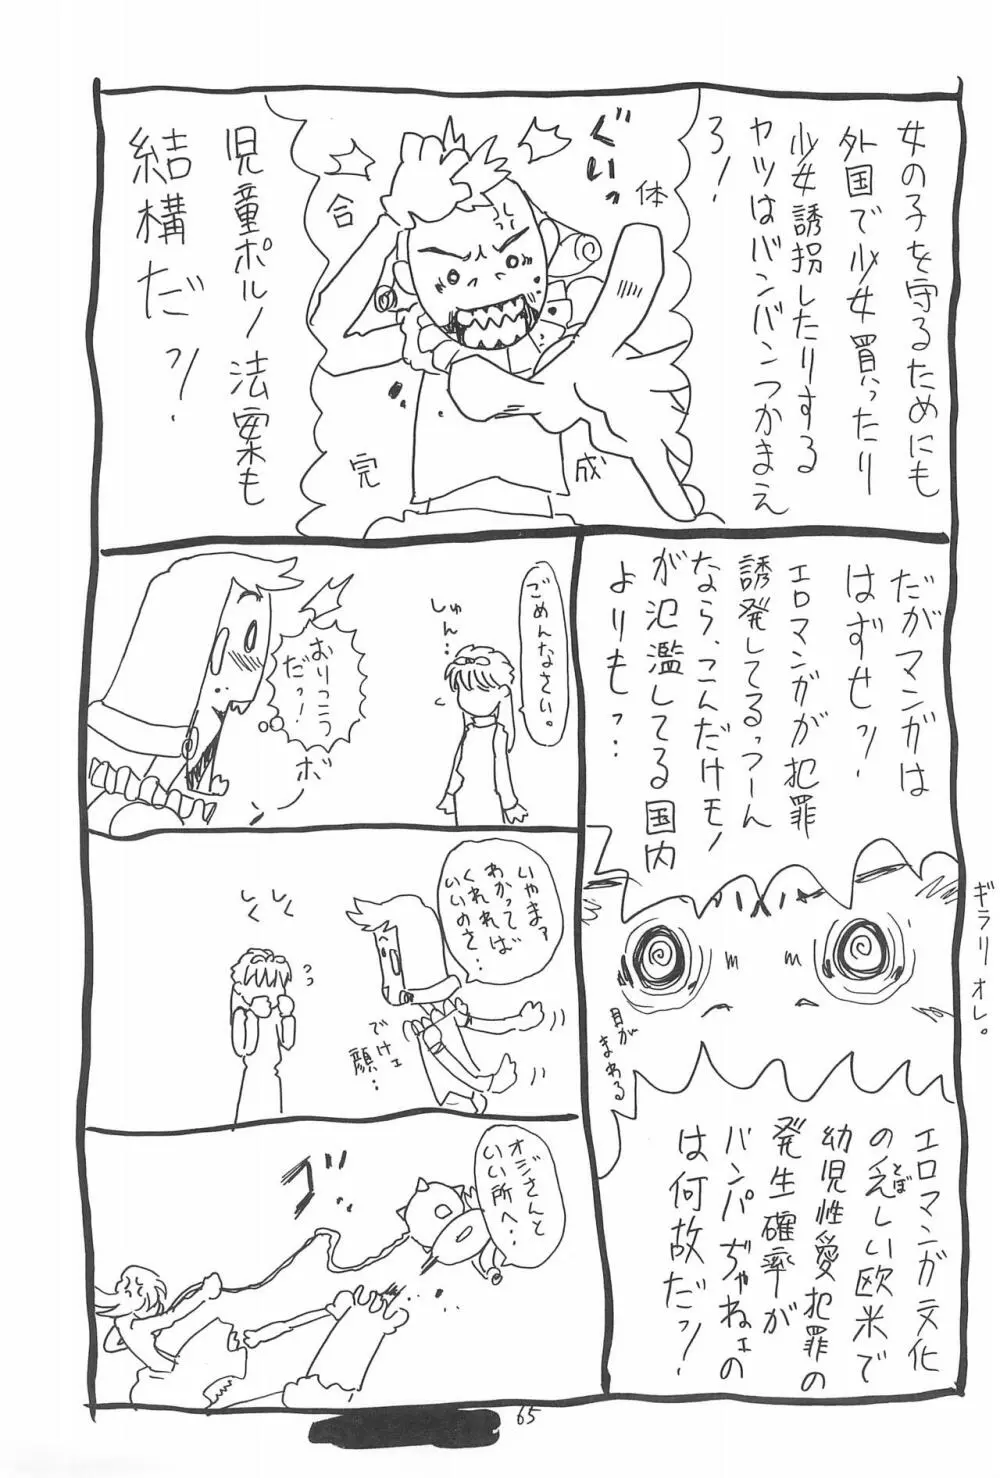 女の子を守るためにも
外国で少女買ったり
少女誘拐したりする
ヤツはバンバンつかまえ
ろ!
ぐいっ
合
体
完
成
児童ポルノ法案も
結構だッ!
だがマンガは
はずせッ!
エロマンガが犯罪
誘発してるっつーん
なら、こんだけモノ
が氾濫してる国内
よりもっ…
ギラリオレ。
目が
まわる
エロマンガ文化
の乏しい欧米で
とぼ
幼児性愛犯罪の
発生確率が
バンパぢゃねェの
は何故だッ!
ごめんなさい。
しゅん…
おりこう
だっ!
ボーン
いやまァ
わかって
くれれば
いいのさ…
でけェ
顔…
しく
しく
オジさんと
いい所へ…
ゴ
65